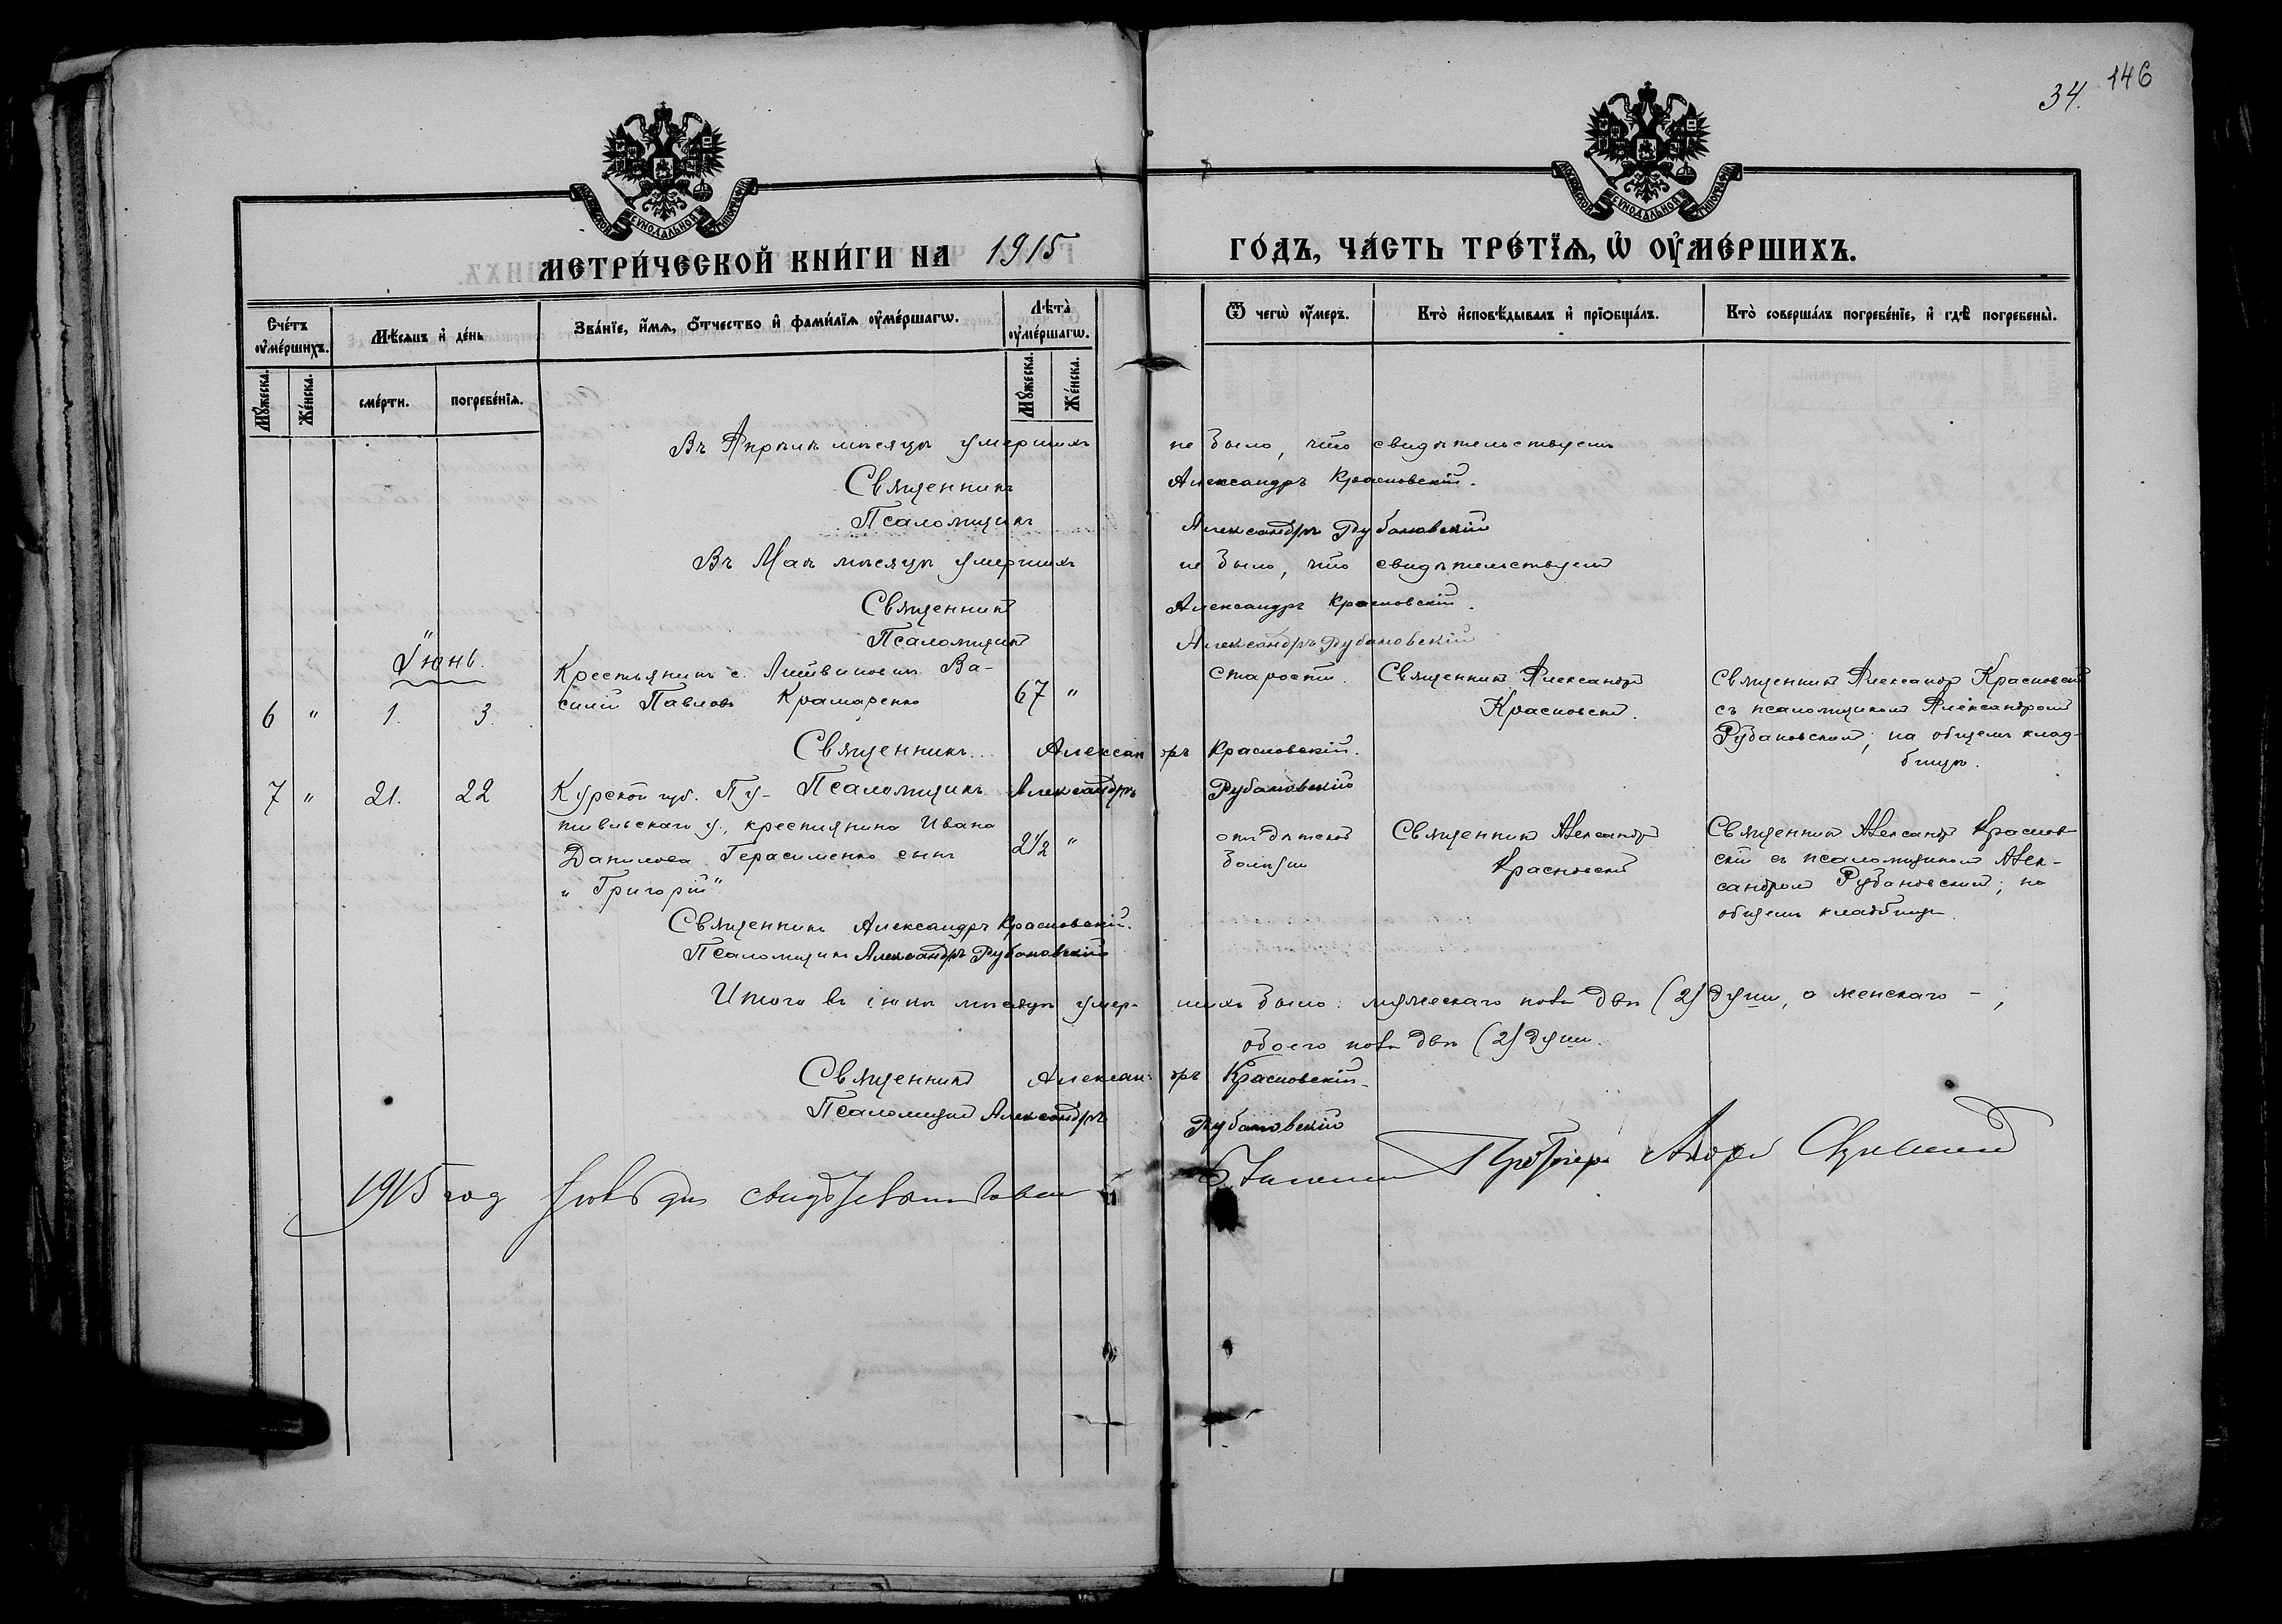 34. 146
МОСКОВСКОЙ СУНОДАЛЬНОЙ ТИПОГРАФІИ
МОСКОВСКОЙ СУНОДАЛЬНОЙ ТИПОГРАФІИ
МЕТРИ́ЧЕСКОЙ КНИ́ГИ НА 1915 ГО́ДЪ, ЧА́СТЬ ТРЕ́ТЇѦ, Ѡ҆ ОУ҆МЕ́РШИХЪ.
Сче́тъ оу҆ме́ршихъ.
Мѣ́сяцъ и҆ де́нь
Зва́нїе, и҆́мѧ, ѻ҆́тчество и҆ фами́лїѧ оу҆ме́ршагѡ.
Лѣ́та оу҆ме́ршагѡ.
Ѿ чегѡ̀ оу҆́меръ.
Кто̀ и҆сповѣ́дывалъ и҆ прїѻбща́лъ.
Кто̀ соверша́лъ погребе́нїе, и҆ гдѣ̀ погребены̀.
Мꙋ́жеска.
Же́нска.
сме́рти.
погребе́нїѧ.
Мꙋ́жеска.
Же́нска.
Въ Апрѣлѣ мѣсяцѣ умершихъ не было, что свидѣтельствуемъ
Священникъ Александръ Красновскій.
Псаломщикъ Александръ Рубановскій
Въ Маѣ мѣсяцѣ умершихъ не было, что свидѣтельствуемъ
Священникъ Александръ Красновскій.
Псаломщикъ Александръ Рубановскій
Іюнь.
6 " 1. 3.
Крестьянинъ с. Литвиновичъ Ва-
силій Павловъ Крамаренко
67 "
старости.
Священникъ Александръ
Красновскій.
Священникъ Александръ Красновскій
съ псаломщикомъ Александромъ
Рубановскимъ; на общемъ клад-
бищѣ.
Священникъ Александръ Красновскій.
Псаломщикъ Александръ Рубановскій
7 " 21. 22
Курской губ. Пу-
тивльскаго у., крестьянина Ивана
Данилова Герасименко сынъ
"Григорій"
2 1/2 "
отъ дѣтской
болѣзни
Священникъ Александръ
Красновскій
Священникъ Александръ Краснов-
скій съ псаломщикомъ Алек-
сандромъ Рубановскимъ; на
общемъ кладбищѣ.
Священникъ Александръ Красновскій.
Псаломщикъ Александръ Рубановскій
Итого въ іюнѣ мѣсяцѣ умер- шихъ было: мужескаго пола двѣ (2) души, а женскаго - ;
обоего пола двѣ (2) души.
Священникъ Александръ Красновскій.
Псаломщикъ Александръ Рубановскій
1915 год